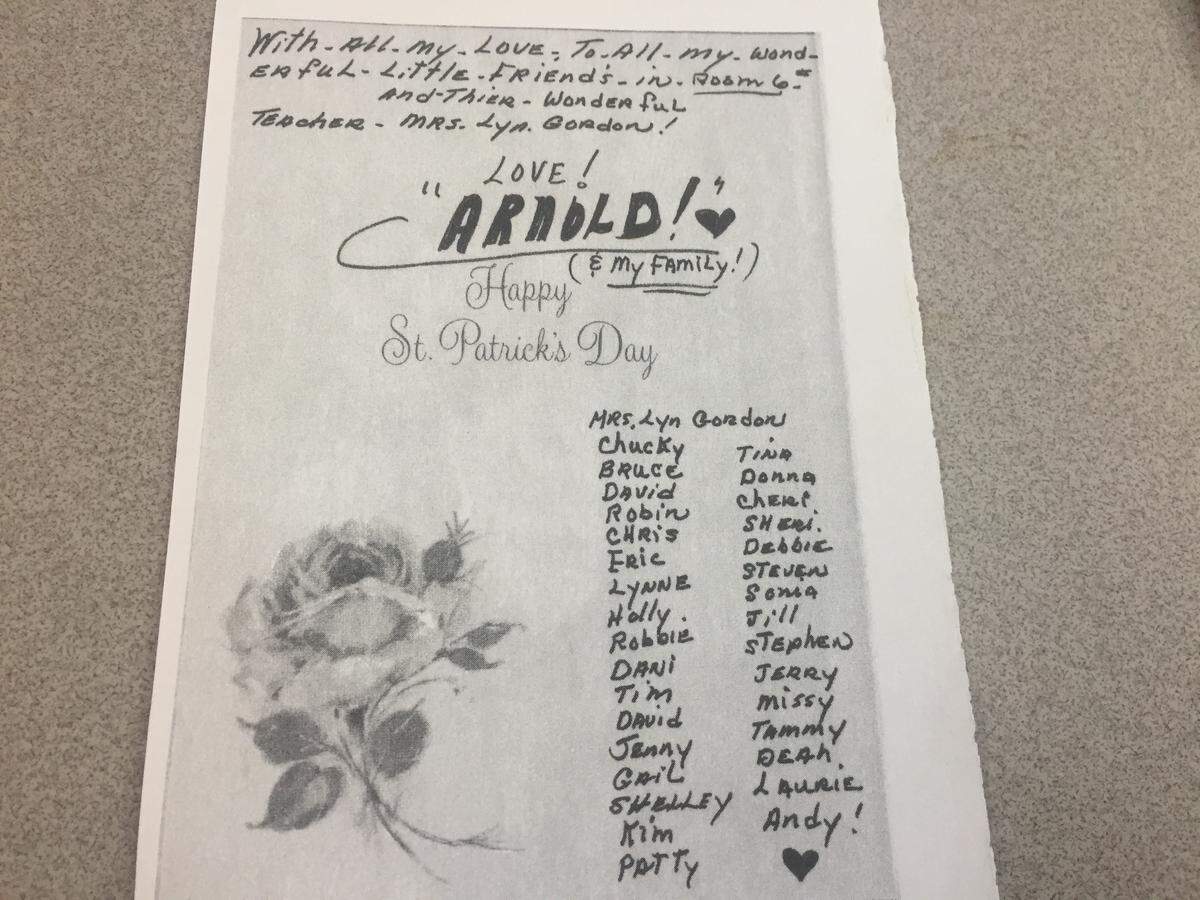 With - All - my - LOVE - To - All - my - Wond-
ERfuL - LittLE - FRiEnd's - in - Room 6.
And - ThiER - WondERfuL
TEAchER - MRS. Lyn. GoRdon!
LOVE!
"ARNOLD!"
(& My FAMiLy!)
Happy
St. Patrick's Day
MRS. Lyn GoRdon
Chucky
BRUCE
DAVid
Robin
CHRiS
ERic
LYNNE
Holly.
Robbie
DANi
Tim
DAVid
JEnny
GAiL
SHELLEY
Kim
PATTy
TiNA
Donna
ChERi.
SHERi.
DEbbiE
STEVEN
Sonia
Jill
STEphEN
JERRy
missy
TAmmy
DEAh.
LAURiE
Andy!